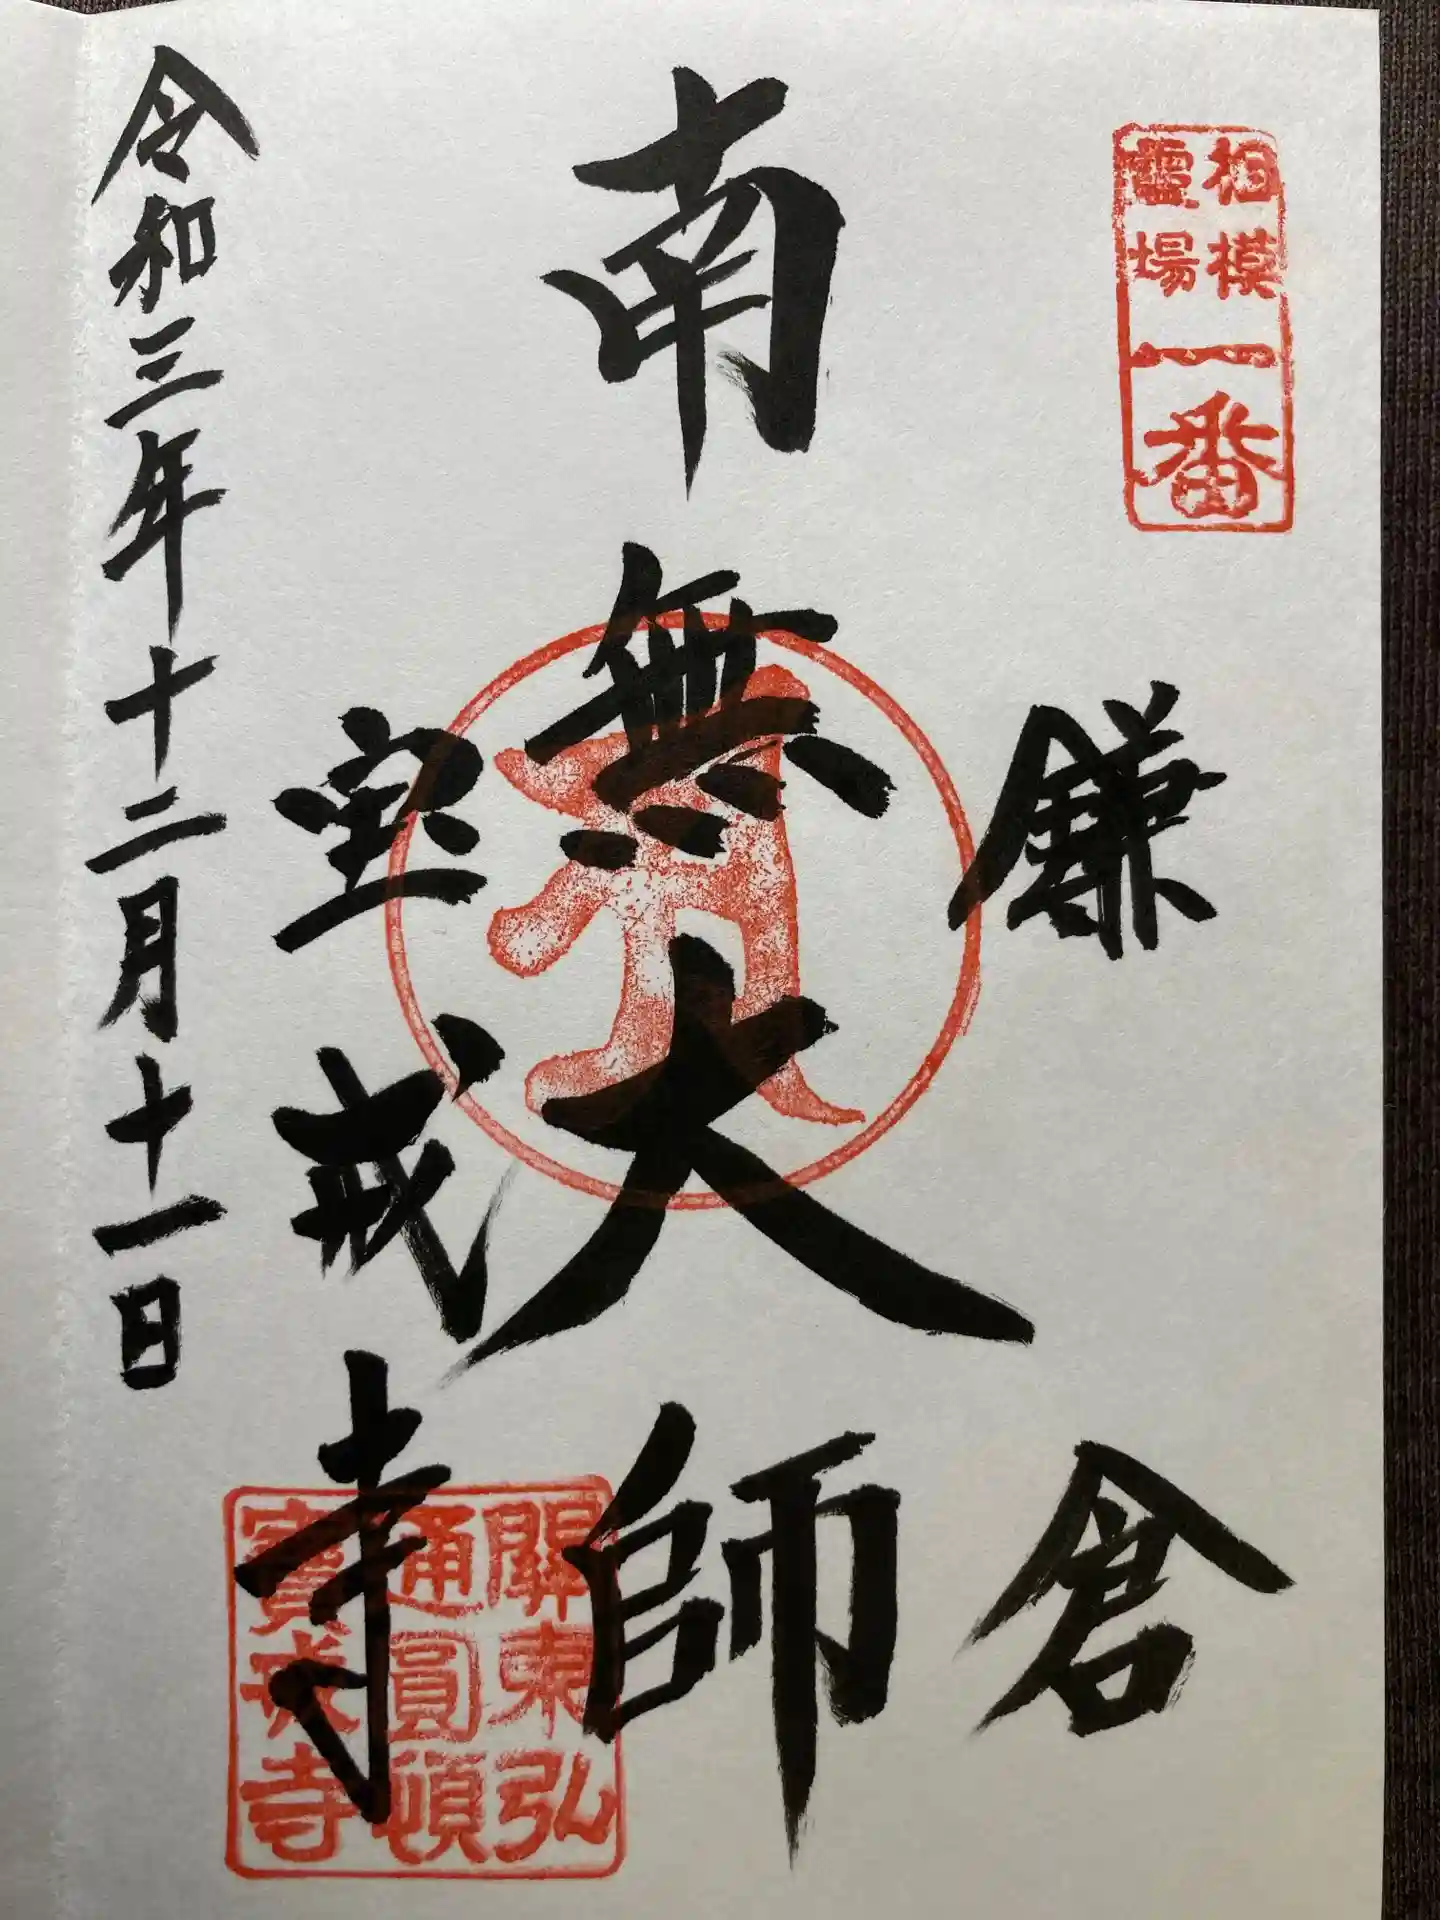 相模
霊場
一番
鎌倉
南無大師
宝戒寺
關東弘
通圓頓
寳戒寺
令和三年十二月十一日